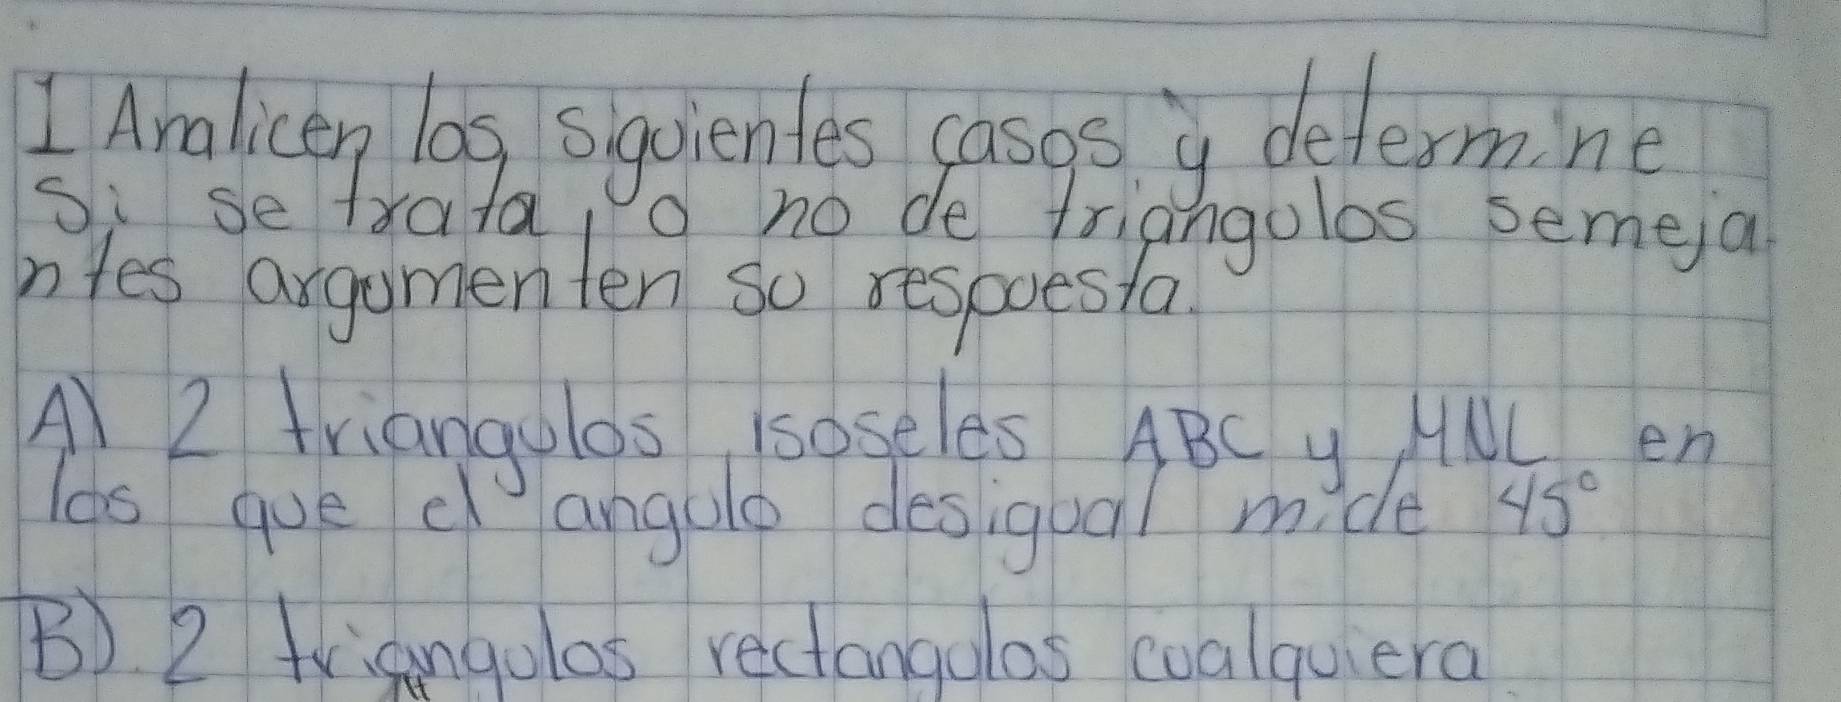 I Analicen los siguientes casos y determine
si se trata, o no de triangulos semeja
ntes argumenten su respuesta.
A) 2 triangulos isoseles ABC y MNL en
los que el angulo desigual mide 45°
B) 2 triangulos rectangulos cualquiera